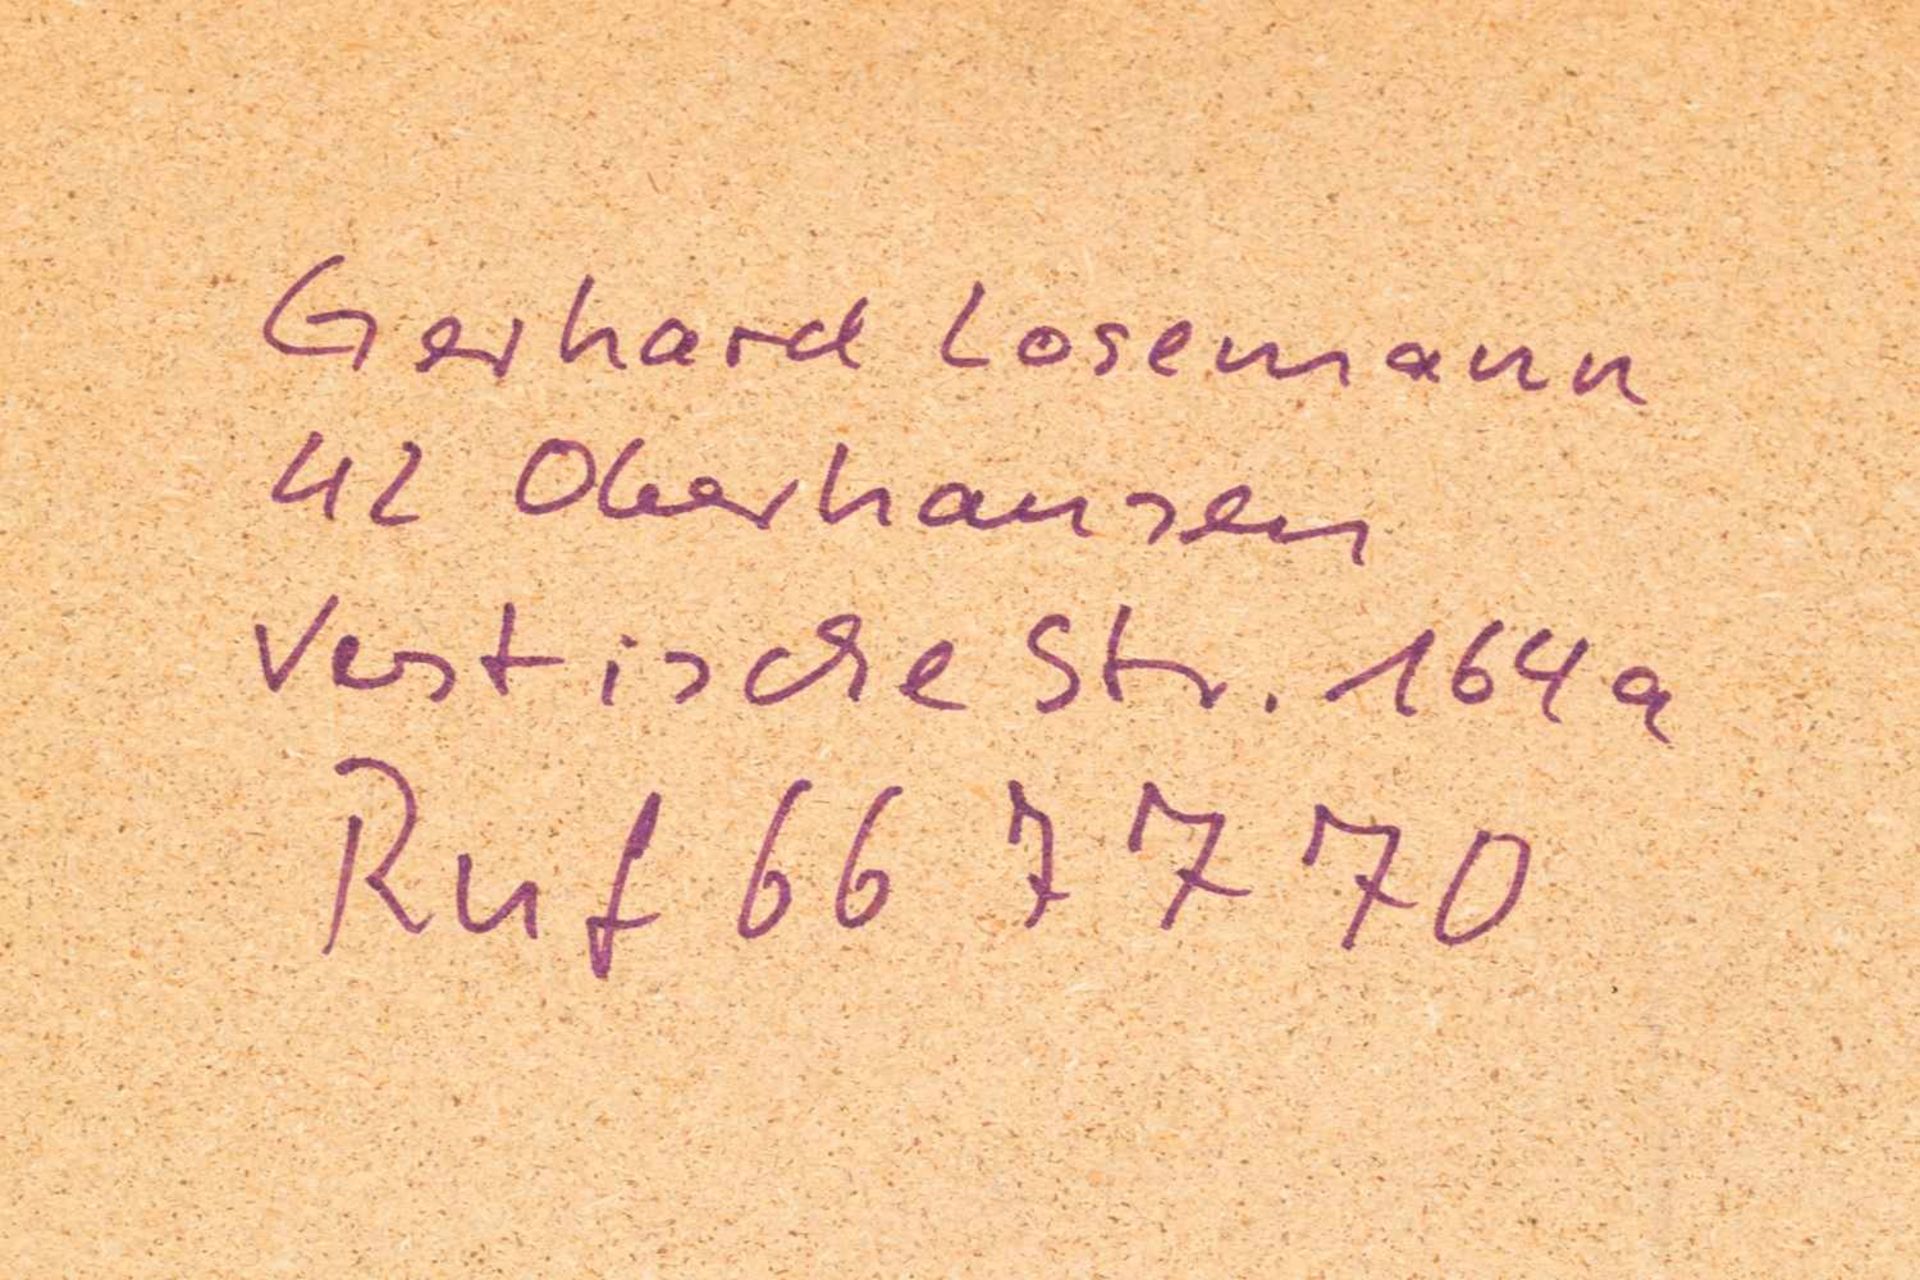 Gerhard Losemann
42 Oberhausen
Vestische Str. 164a
Ruf 66 7770